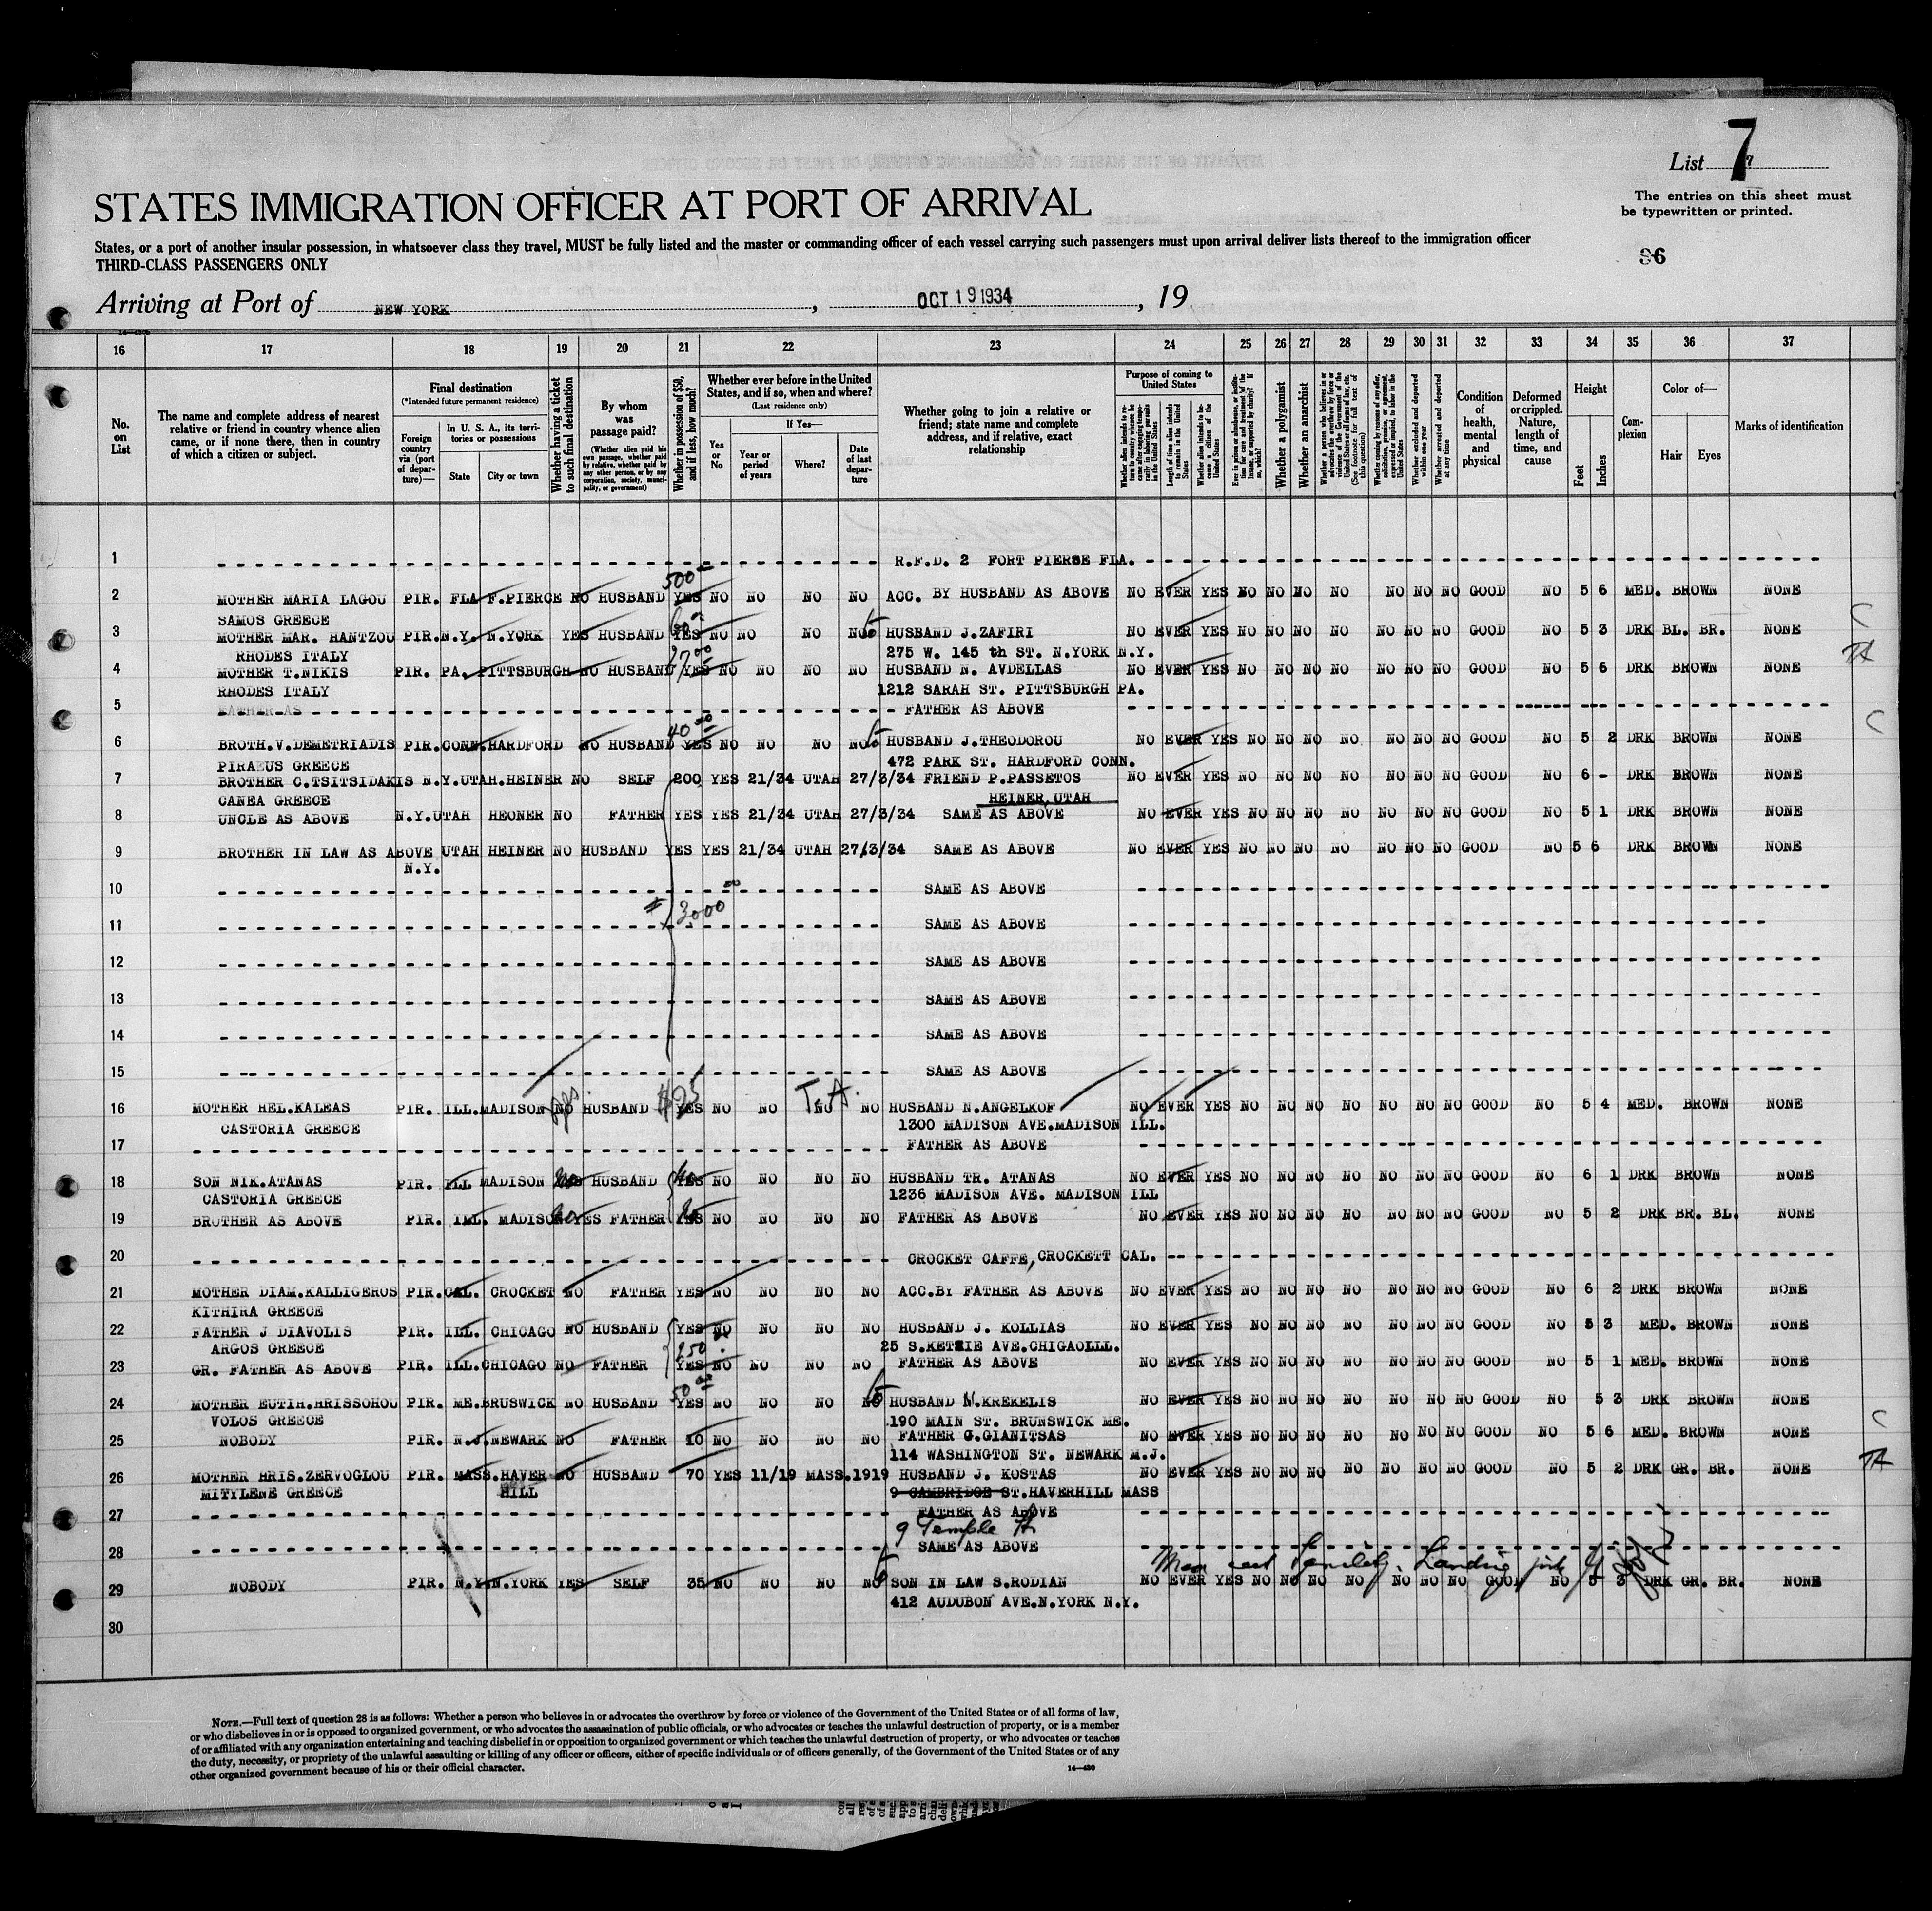 List 7
The entries on this sheet must
be typewritten or printed.
STATES IMMIGRATION OFFICER AT PORT OF ARRIVAL
States, or a port of another insular possession, in whatsoever class they travel, MUST be fully listed and the master or commanding officer of each vessel carrying such passengers must upon arrival deliver lists thereof to the immigration officer
THIRD-CLASS PASSENGERS ONLY
86
Arriving at Port of NEW YORK, OCT 19 1934, 19
16 17 18 19 20 21 22 23 24 25 26 27 28 29 30 31 32 33 34 35 36 37
No. on List
The name and complete address of nearest relative or friend in country whence alien came, or if none there, then in country of which a citizen or subject.
Final destination
(*Intended future permanent residence)
Foreign country via (port of departure)—
In U. S. A., its territories or possessions
State
City or town
Whether having a ticket to such final destination
By whom was passage paid?
(Whether alien paid his own passage, whether paid by relative, whether paid by any other person, or by any corporation, society, municipality, or government)
Whether in possession of $50, and if less, how much?
Whether ever before in the United States, and if so, when and where?
(Last residence only)
If Yes—
Yes or No
Year or period of years
Where?
Date of last departure
Whether going to join a relative or friend; state name and complete address, and if relative, exact relationship
Purpose of coming to United States
Length of time alien intends to remain in the United States
Whether alien intends to become a citizen of the United States
Whether a polygamist
Whether an anarchist
Whether excluded and deported within one year
Whether arrested and deported at any time
Condition of health, mental and physical
Deformed or crippled. Nature, length of time, and cause
Height
Feet
Inches
Complexion
Color of—
Hair
Eyes
Marks of identification
1 R.F.D. 2 FORT PIERSE FLA.
500
2 MOTHER MARIA LAGOU PIR. FLA F.PIERCE NO HUSBAND YES NO NO NO NO ACC. BY HUSBAND AS ABOVE NO EVER YES NO NO NO NO NO NO NO GOOD NO 5 6 MED. BROWN NONE
SAMOS GREECE
3 MOTHER MAR. HANTZOU PIR. N.Y. N.YORK YES HUSBAND YES NO NO NO NO HUSBAND J.ZAFIRI NO EVER YES NO NO NO NO NO NO NO GOOD NO 5 3 DRK BL. BR. NONE
RHODES ITALY 275 W. 145 th ST. N.YORK N.Y.
4 MOTHER T.NIKIS PIR. PA. PITTSBURGH NO HUSBAND YES NO NO NO NO HUSBAND N. AVDELLAS NO EVER YES NO NO NO NO NO NO NO GOOD NO 5 6 DRK BROWN NONE
RHODES ITALY 1212 SARAH ST. PITTSBURGH PA.
5 FATHER AS FATHER AS ABOVE
40 00
6 BROTH.V.DEMETRIADIS PIR. CONN. HARDFORD NO HUSBAND YES NO NO NO NO HUSBAND J.THEODOROU NO EVER YES NO NO NO NO NO NO NO GOOD NO 5 2 DRK BROWN NONE
PIRAEUS GREECE 472 PARK ST. HARDFORD CONN.
7 BROTHER C.TSITSIDAKIS N.Y. UTAH. HEINER NO SELF 200 YES 21/34 UTAH 27/3/34 FRIEND P.PASSETOS NO EVER YES NO NO NO NO NO NO NO GOOD NO 6 - DRK BROWN NONE
CANEA GREECE HEINER, UTAH
8 UNCLE AS ABOVE N.Y. UTAH HEONER NO FATHER YES YES 21/34 UTAH 27/3/34 SAME AS ABOVE NO EVER YES NO NO NO NO NO NO NO GOOD NO 5 1 DRK BROWN NONE
9 BROTHER IN LAW AS ABOVE UTAH HEINER NO HUSBAND YES YES 21/34 UTAH 27/3/34 SAME AS ABOVE NO EVER YES NO NO NO NO NO NO NO GOOD NO 5 6 DRK BROWN NONE
N.Y.
10 SAME AS ABOVE
3000 00
11 SAME AS ABOVE
12 SAME AS ABOVE
13 SAME AS ABOVE
14 SAME AS ABOVE
15 SAME AS ABOVE
$25 T.A.
16 MOTHER HEL.KALEAS PIR. ILL. MADISON NO HUSBAND YES NO NO NO NO HUSBAND N.ANGELKOF NO EVER YES NO NO NO NO NO NO NO GOOD NO 5 4 MED. BROWN NONE
CASTORIA GREECE 1300 MADISON AVE.MADISON ILL.
17 FATHER AS ABOVE
18 SON NIK.ATANAS PIR. ILL MADISON HUSBAND YES NO NO NO NO HUSBAND TR. ATANAS NO EVER YES NO NO NO NO NO NO NO GOOD NO 6 1 DRK BROWN NONE
CASTORIA GREECE 1236 MADISON AVE. MADISON ILL
19 BROTHER AS ABOVE PIR. ILL. MADISON YES FATHER YES NO NO NO NO FATHER AS ABOVE NO EVER YES NO NO NO NO NO NO NO GOOD NO 5 2 DRK BR. BL. NONE
20 CROCKET CAFFE, CROCKETT CAL.
21 MOTHER DIAM.KALLIGEROS PIR. CAL. CROCKET NO FATHER YES NO NO NO NO ACC.BY FATHER AS ABOVE NO EVER YES NO NO NO NO NO NO NO GOOD NO 6 2 DRK BROWN NONE
KITHIRA GREECE
22 FATHER J DIAVOLIS PIR. ILL. CHICAGO NO HUSBAND YES NO NO NO NO HUSBAND J. KOLLIAS NO EVER YES NO NO NO NO NO NO NO GOOD NO 5 3 MED. BROWN NONE
ARGOS GREECE 250 25 S.KETZIE AVE.CHIGAOLLL.
23 GR. FATHER AS ABOVE PIR. ILL. CHICAGO NO FATHER YES NO NO NO NO FATHER AS ABOVE NO EVER YES NO NO NO NO NO NO NO GOOD NO 5 1 MED. BROWN NONE
50 00
24 MOTHER EUTIH.HRISSOHOU PIR. ME. BRUSWICK NO HUSBAND YES NO NO NO NO HUSBAND N.KREKELIS NO EVER YES NO NO NO NO NO NO NO GOOD NO 5 3 DRK BROWN NONE
VOLOS GREECE 190 MAIN ST. BRUNSWICK ME.
25 NOBODY PIR. N.J. NEWARK NO FATHER 10 NO NO NO NO FATHER G.GIANITSAS NO EVER YES NO NO NO NO NO NO NO GOOD NO 5 6 MED. BROWN NONE
114 WASHINGTON ST. NEWARK M.J.
26 MOTHER HRIS.ZERVOGLOU PIR. MASS. HAVER NO HUSBAND 70 YES 11/19 MASS. 1919 HUSBAND J. KOSTAS NO EVER YES NO NO NO NO NO NO NO GOOD NO 5 2 DRK GR. BR. NONE
MITYLENE GREECE HILL 9 CAMBRIDGE ST.HAVERHILL MASS
27 FATHER AS ABOVE
9 Temple St
28 SAME AS ABOVE
29 NOBODY PIR. N.Y. N.YORK YES SELF 35 NO NO NO NO SON IN LAW S.RODIAN NO EVER YES NO NO NO NO NO NO NO GOOD NO 5 3 DRK GR. BR. NONE
412 AUDUBON AVE.N.YORK N.Y.
30
NOTE.—Full text of question 28 is as follows: Whether a person who believes in or advocates the overthrow by force or violence of the Government of the United States or of all forms of law,
or who disbelieves in or is opposed to organized government, or who advocates the assassination of public officials, or who advocates or teaches the unlawful destruction of property, or is a member
of or affiliated with any organization entertaining and teaching disbelief in or opposition to organized government or which teaches the unlawful destruction of property, or who advocates or teaches
the duty, necessity, or propriety of the unlawful assaulting or killing of any officer or officers, either of specific individuals or of officers generally, of the Government of the United States or of any
other organized government because of his or their official character.
14—430